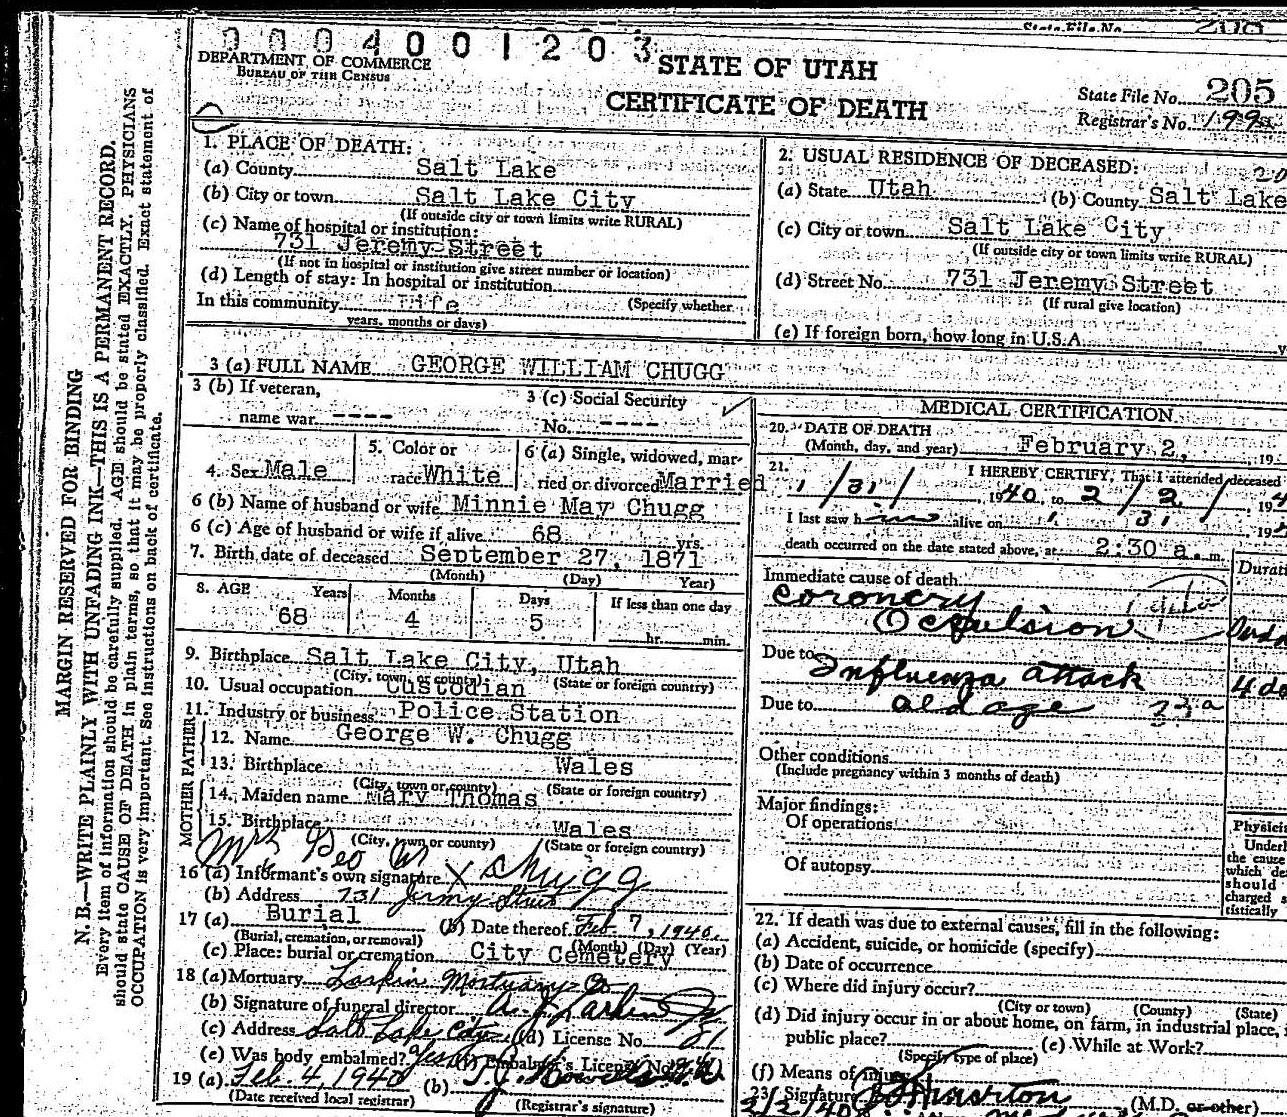 State File No. 208
0004001203
DEPARTMENT OF COMMERCE
BUREAU OF THE CENSUS
STATE OF UTAH
CERTIFICATE OF DEATH
State File No. 205
Registrar's No. 199
MARGIN RESERVED FOR BINDING
N. B.—WRITE PLAINLY WITH UNFADING INK—THIS IS A PERMANENT RECORD.
Every item of information should be carefully supplied. AGE should be stated EXACTLY. PHYSICIANS
should state CAUSE OF DEATH in plain terms, so that it may be properly classified. Exact statement of
OCCUPATION is very important. See Instructions on back of certificate.
1. PLACE OF DEATH:
(a) County Salt Lake
(b) City or town Salt Lake City
(If outside city or town limits write RURAL)
(c) Name of hospital or institution:
731 Jeremy Street
(If not in hospital or institution give street number or location)
(d) Length of stay: In hospital or institution
In this community Life (Specify whether
years, months or days)
2. USUAL RESIDENCE OF DECEASED: 20
(a) State Utah (b) County Salt Lake
(c) City or town Salt Lake City
(If outside city or town limits write RURAL)
(d) Street No. 731 Jeremy Street
(If rural give location)
(e) If foreign born, how long in U.S.A. y
3 (a) FULL NAME GEORGE WILLIAM CHUGG
3 (b) If veteran,
name war ----
3 (c) Social Security
No. ----
4. Sex Male
5. Color or
race White
6 (a) Single, widowed, mar-
ried or divorced Married
6 (b) Name of husband or wife Minnie May Chugg
6 (c) Age of husband or wife if alive 68 yrs.
7. Birth date of deceased September 27, 1871
(Month) (Day) Year)
8. AGE Years Months Days If less than one day
68 4 5 hr. min.
9. Birthplace Salt Lake City, Utah
(City, town, or county) (State or foreign country)
10. Usual occupation Custodian
11. Industry or business Police Station
FATHER
12. Name George W. Chugg
13. Birthplace Wales
(City, town or county) (State or foreign country)
MOTHER
14. Maiden name Mary Thomas
15. Birthplace Wales
(City, town or county) (State or foreign country)
16 (a) Informant's own signature X Mrs Geo W Chugg
(b) Address 731 Jermy Street
17 (a) Burial (b) Date thereof Feb. 7, 1940.
(Burial, cremation, or removal) (Month) (Day) (Year)
(c) Place: burial or cremation City Cemetery
18 (a) Mortuary Larkin Mortuary Co
(b) Signature of funeral director A. J. Larkin Jr
(c) Address Salt Lake City (d) License No. 81
(e) Was body embalmed? Yes (f) Embalmer's License No.
19 (a) Feb. 4, 1940 (b)
(Date received local registrar) (Registrar's signature)
MEDICAL CERTIFICATION
20. DATE OF DEATH
(Month, day, and year) February 2, 19
21. I HEREBY CERTIFY, That I attended deceased
1/31/ 1940 to 2/2/ 194
I last saw him alive on 1 31 19
death occurred on the date stated above, at 2:30 a. m.
Immediate cause of death Durati
Coronery
Occulsion
Due to Influenza attack 4 da
Due to old age 33a
Other conditions
(Include pregnancy within 3 months of death)
Major findings:
Of operations
Of autopsy
Physici
Underl
the cause
which de
should
charged s
tistically
22. If death was due to external causes, fill in the following:
(a) Accident, suicide, or homicide (specify)
(b) Date of occurrence
(c) Where did injury occur?
(City or town) (County) (State)
(d) Did injury occur in or about home, on farm, in industrial place,
public place? (e) While at Work?
(Specify type of place)
(f) Means of injury
23. Signature (M.D. or other)
2/2/40